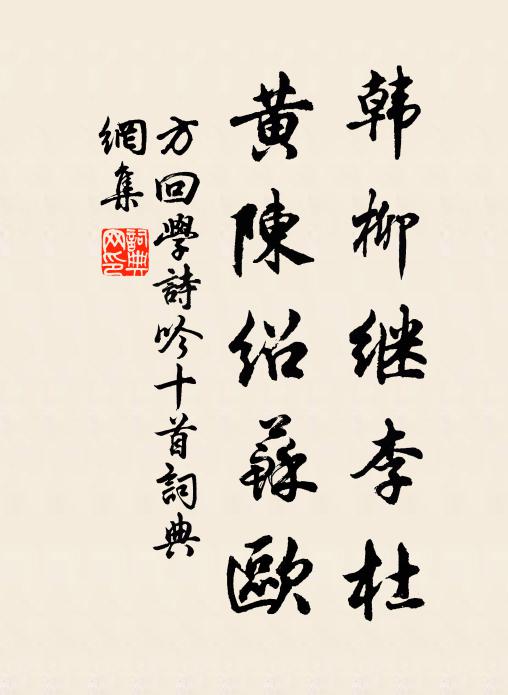 韩柳继李杜
黄陳绍蘇歐
方回學詩吟十首詞典
網集
詞典網印